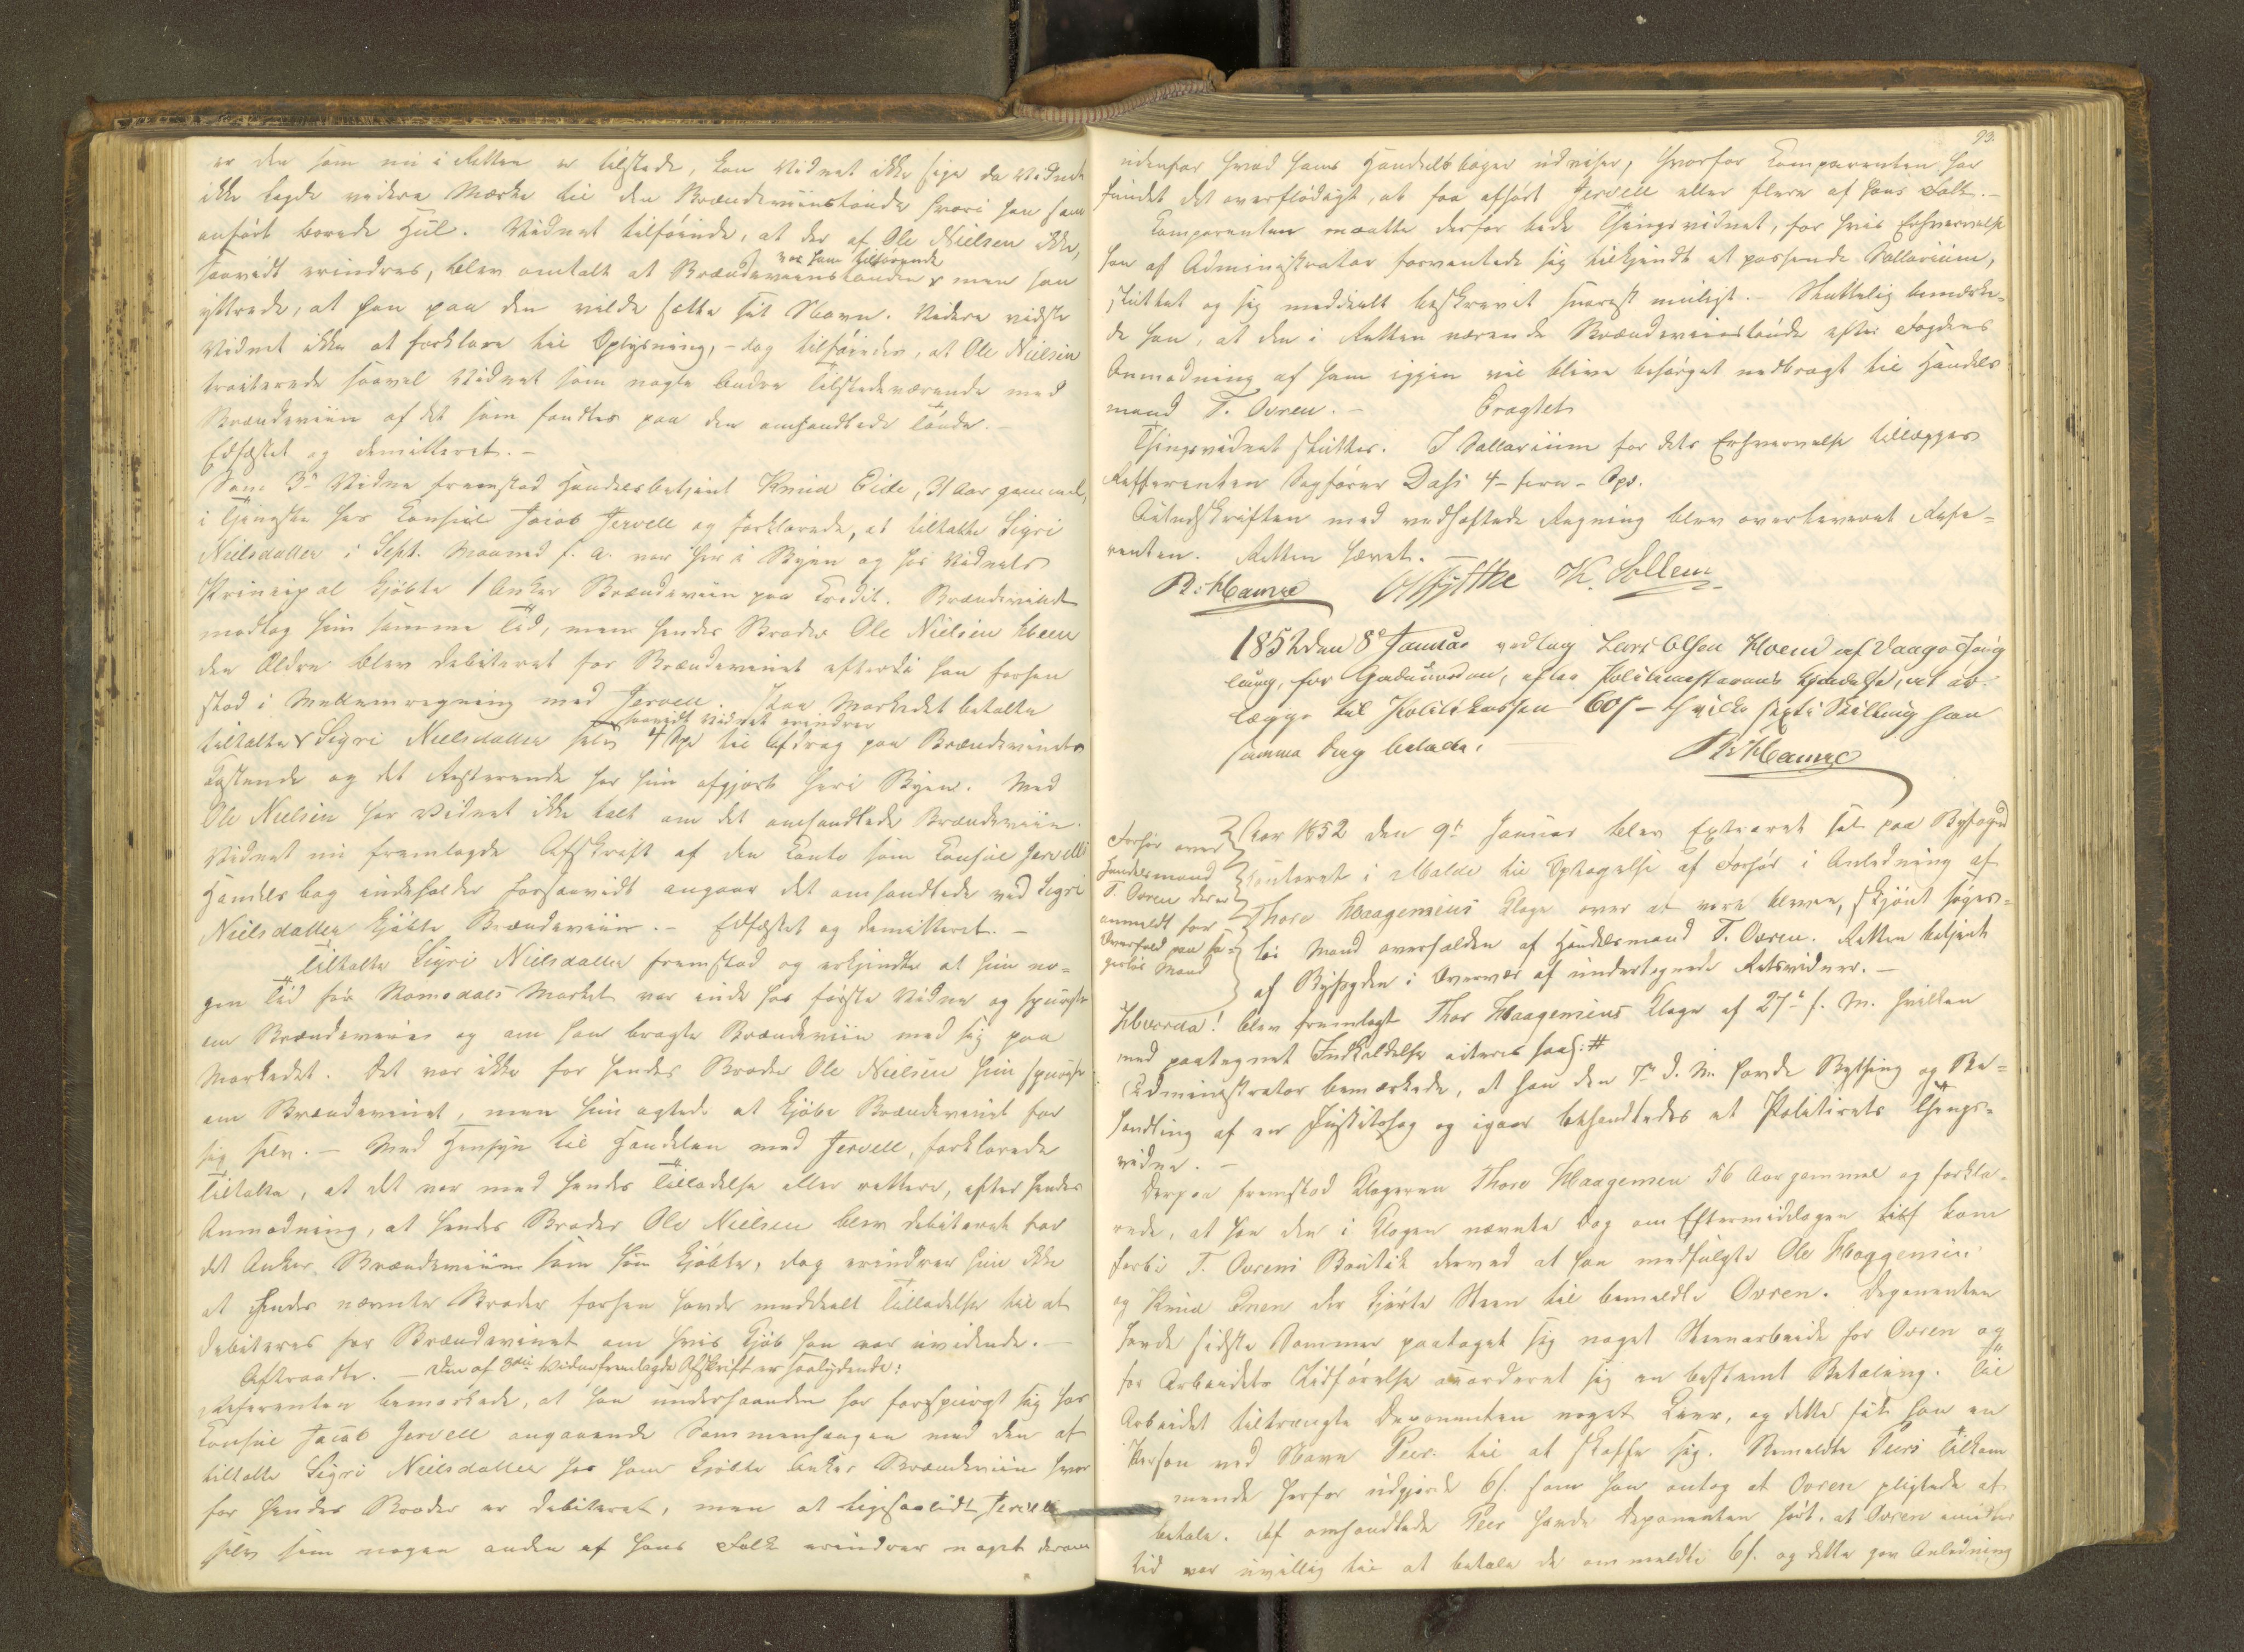 er den som nu i Retten er tilstede, kan Vidnet ikke sige da Vidnet
ikke lagde videre Mærke til den Brændeviinstønde hvori han som
anført borede Hul. Vidnet tilføiede, at der af Ole Nielsen ikke,
saavidt erindres, blev omtalt at Brændeviinstønden var ham tilhørende men han
yttrede, at han paa den vilde sætte sit Navn. Videre vidste
Vidnet ikke at forklare til Oplysning, - dog tilføiedes, at Ole Nielsen
tracterede saavel Vidnet som nogle Andre Tilstedeværende med
Brændeviin af det som fandtes paa den omhandlede Tønde. -
Edfæstet og demitteret. -
Som 3die Vidne fremstod Handelsbetjent Knud Eide, 31 Aar gammel,
i Tjeneste hos Consul Jacob Jervell og forklarede, at tiltalte Sigri
Nielsdatter i Sept. Maaned f. A. var her i Byen og hos Vidnets
Principal kjøbte 1 Anker Brændeviin paa Credit. Brændeviinet
modtog hun samme Tid, men hendes Broder Ole Nielsen Hoem
den Ældre blev debiteret for Brændeviinet efterdi han forhen
stod i Mellemregning med Jervell. Paa Markedet betalte
tiltalte Sigri Nielsdatter saavidt Vidnet erindrer selv 4 Spd til Afdrag paa Brændeviinets
Kostende og det Resterende har hun afgjort her i Byen. Med
Ole Nielsen har Vidnet ikke talt om det omhandlede Brændeviin.
Vidnet nu fremlagde Afskrift af den Conto som Consul Jervells
Handelsbog indeholder forsaavidt angaaer det omhandlede ved Sigri
Nielsdatter kjøbte Brændeviin. - Edfæstet og demitteret. -
Tiltalte Sigri Nielsdatter fremstod og erkjendte at hun no=
gen Tid før Romsdals Marked var inde hos første Vidne og spurgte
om Brændeviin og om han bragte Brændeviin med sig paa
Markedet. Det var ikke for hendes Broder Ole Nielsen hun spurgte
om Brændeviinet, men hun agtede at kjøbe Brændeviinet for
sig selv. - Med Hensyn til Handelen med Jervell, forklarede
Tiltalte, at det var med hendes Tilladelse eller rettere, efter hendes
Anmodning, at hendes Broder Ole Nielsen blev debiteret for
det Anker Brændeviin som hun kjøbte, dog erindrer hun ikke
at hendes nævnte Broder forhen havde meddeelt Tilladelse til at
debiteres for Brændeviinet om hvis Kjøb han var uvidende. -
Aftraadte. - Den af 3die Vidne fremlagde Afskrift er saalydende:
Referenten bemærkede, at han underhaanden har forspurgt sig hos
Consul Jacob Jervell angaaende Sammenhængen med den af
tiltalte Sigri Nielsdatter hos ham kjøbte Anker Brændeviin hvor
for hendes Broder er debiteret, men at ligesaalidt Jervell
selv som nogen anden af hans Folk erindrer noget derom
93.
udenfor hvad hans Handelsbøger udviser, hvorfor Comparenten har
fundet det overflødigt, at faa afhørt Jervell eller flere af hans Folk. -
Comparenten maatte derfor lade Thingsvidnet, for hvis Erhvervelse
han af Administrator forventede sig tilkjendt et passende Sallarium,
sluttet og sig meddeelt beskrevet snarest muligt. Sluttelig bemærke=
de han, at den i Retten værende Brændeviinstønde efter Fogdens
Anmodning af ham igjen vil blive besørget nedbragt til Handels=
mand T. Owren. - Eragtet
Thingsvidnet sluttes. I Sallarium for dets Erhvervelse tillægges
Refferenten Sagfører Dahl 4 - fire - Spd.
Citeds skriften med vedhæftede Regning blev overleveret Refe=
renten. Retten hævet. -
R: Hamre K. Sollem
1852 den 8de Januar vedtog Lars Olsen Hoem af Vaagø Ting
laug, for Gadeuorden, efter Politimesterens Kjendelse, at ud=
lægge til Politikassen 60 s - hvilke sexti Skilling han
samme Dag betalte.
R: Hamre
Forhør over
Handelsmand
T. Owren der er
anmeldt for
Overfald paa sa=
gesløs Mand
Aar 1852 den 9de Januar blev Extraret sat paa Byfoged
Contoret i Molde til Optagelse af Forhør i Anledning af
Thore Haagensens Klage over at være bleven, skjønt sages=
løs Mand overfalden af Handelsmand T. Owren. Retten betjent
af Byfogden i Overvær af undertegnede Retsvidner. -
Hvorda! blev fremlagt Thor Haagensens Klage af 27de f. M. hvilken
med paategnet Indkaldelse citeres saal: #
Administrator bemærkede, at han den 7de d. M. havde Bything og Be=
handling af en Justitssag og igaar behandledes et Politirets Things=
vidne. -
Derpaa fremstod Klageren Thore Haagensen 56 Aar gammel og forkla=
rede, at han den i Klagen nævnte Dag om Eftermiddagen kom
forbi T. Owrens Boutik derved at han medfulgte Ole Haagensen
og Knud Onen der kjørte Steen til bemeldte Owren. Deponenten
havde sidste Sommer paataget sig noget Steenarbeide for Owren og
for Arbeidets Udførelse accorderet sig en bestemt Betaling. Til
Arbeidet tiltrængte Deponenten noget Leer, og dette fik han en
Person ved Navn Peer til at skaffe sig. Bemeldte Peers Tilkom
mende herfor udgjorde 6 s. som han antog at Owren pligtede at
betale. Af omhandlede Peer havde Deponenten hørt, at Owren
tid var uvillig til at betale de ommeldte 6 s. og dette gav Anledning